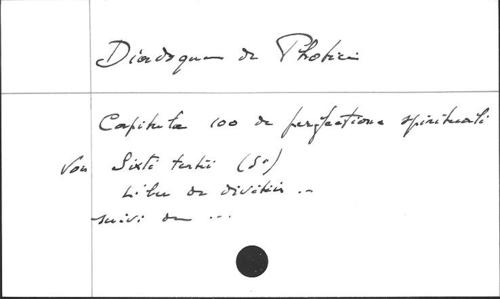 Diadoque de Photice
Capitula 100 de perfectione spirituali
Voir Sixti tertii (St)
Liber de divitiis ..
suivi de ...